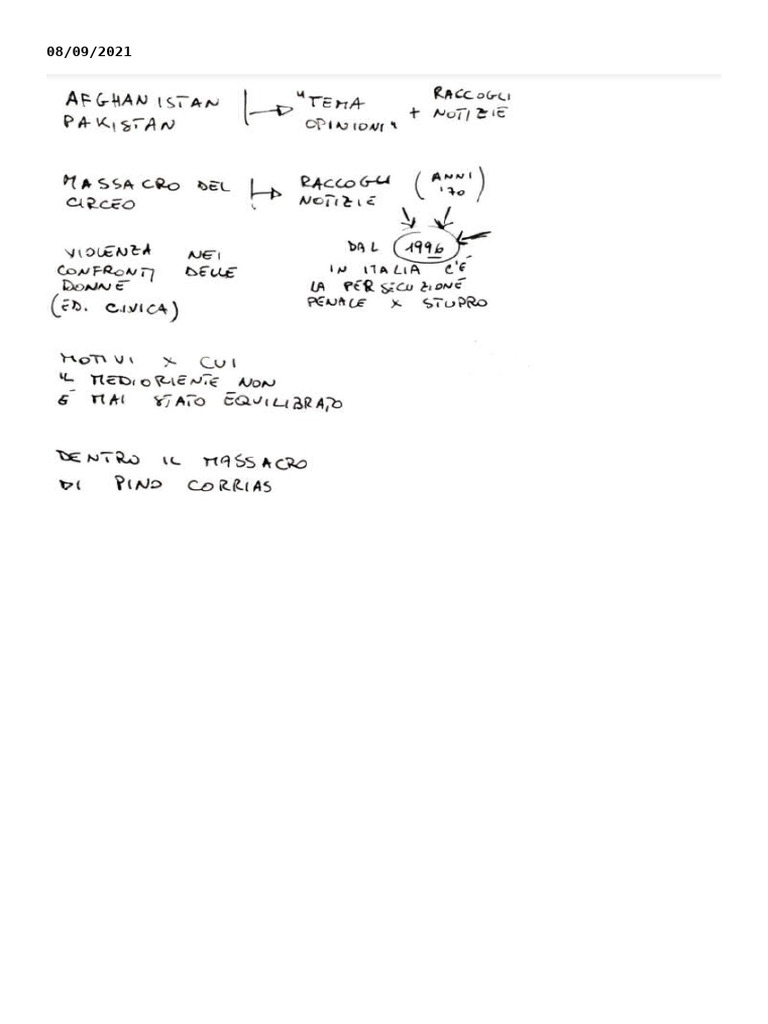 08/09/2021
AFGHANISTAN
PAKISTAN
"TEMA
OPINIONI"
+
RACCOGLI
NOTIZIE
MASSACRO DEL
CIRCEO
RACCOGLI
NOTIZIE
(ANNI
'70)
VIOLENZA NEI
CONFRONTI DELLE
DONNE
(ED. CIVICA)
DAL 1996
IN ITALIA C'É
LA PERSECUZIONE
PENALE X STUPRO
MOTIVI X CUI
IL MEDIORIENTE NON
É MAI STATO EQUILIBRATO
DENTRO IL MASSACRO
DI PINO CORRIAS